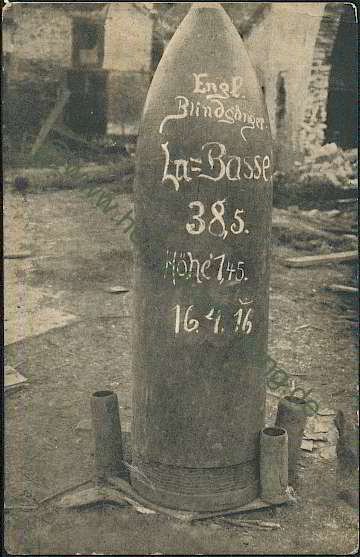 Engl.
Blindgänger
La=Basse.
38,5.
Höhe 1,45.
16. 4. 16